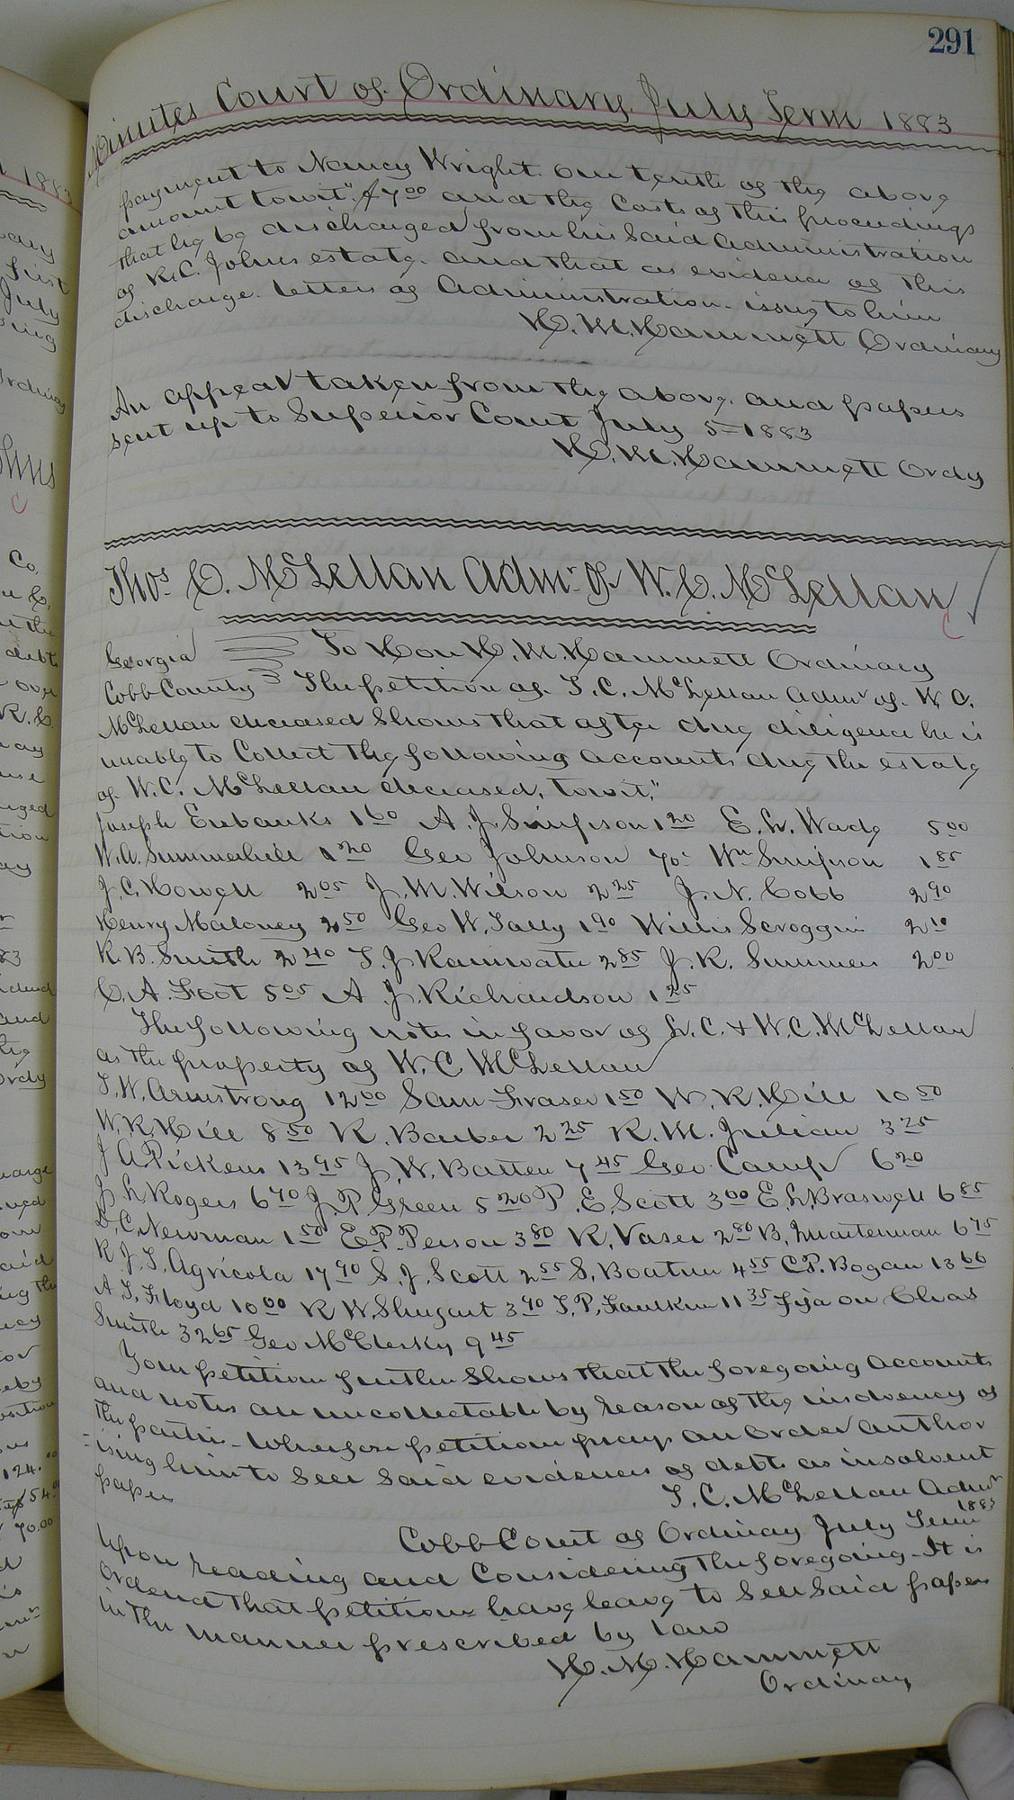 291
Minutes Court of Ordinary July Term 1883
payment to Nancy Wright one tenth of the above
amount towit" $7 00 and the Costs of this proceedings
that he be discharged from his Said administration
of R.C. Johns estate and that as evidence of this
discharge letters of Administration issue to him
H. M. Hammett Ordinary
An appeal taken from the above and papers
sent up to Superior Court July 5 1883
H. M. Hammett Ordy
Thos C. McLellan Admr of W. C. McLellan
Georgia To Hon H. M. Hammett Ordinary
Cobb County The petition of T. C. McLellan Admr of W. C.
McLellan deceased Shows that after due diligence he is
unable to Collect the following accounts due the estate
of W. C. McLellan deceased, towit,"
Joseph Eubanks 1 60 A. J. Simpson 1 20 E. W. Wade 5 00
W. A. Summerhill 1 20 Geo Johnson 70c Wm Simpson 1 85
J. C. Howell 2 05 J. M. Wilson 2 25 J. N. Cobb 2 90
Henry Maloney 2 50 Geo W. Tally 1 90 Willis Scroggin 2 10
R. B. Smith 2 40 T. J. Rainwater 2 85 J. R. Summers 2 00
C. A. Foot 5 05 A. J. Richardson 1 25
The following notes in favor of L. C. & W. C. McLellan
as the property of W. C. McLellan
T. W. Armstrong 12 00 Sam Fraser 1 50 W. R. Hill 10 50
W. R. Hill 8 50 R. Barber 2 25 R. M. Julian 3 25
J A. Pickens 13 95 J. W. Batten 7 45 Geo. Camp 6 20
J. L. Rogers 6 70 J. P. Green 5 20 P. E. Scott 3 00 E. L. Braswell 6 85
D. C. Newman 1 50 E. P. Person 3 80 R. Vaser 2 80 B. Musterman 6 75
R. J. T. Agricola 17 90 S. J. Scott 2 55 S. Boatner 4 55 C. P. Bogan 13 66
A. T. Floyd 10 00 R W. Shugart 3 90 T. P. Faulkner 11 35 fifa on Chas
Smith 32 65 Geo McClesky 9 45
Your petition further Shows that the foregoing Accounts
and notes are uncollectable by reason of the insolvency of
the parties. Wherefore petitioner prays an Order author
=ising him to Sell Said evidences of debt as insolvent
papers
T. C. McLellan Admr
Cobb Court of Ordinary July Term 1883
Upon reading and Considering the foregoing. It is
Ordered that petitioner have leave to Sell Said papers
in the manner prescribed by law
H. M. Hammett
Ordinary